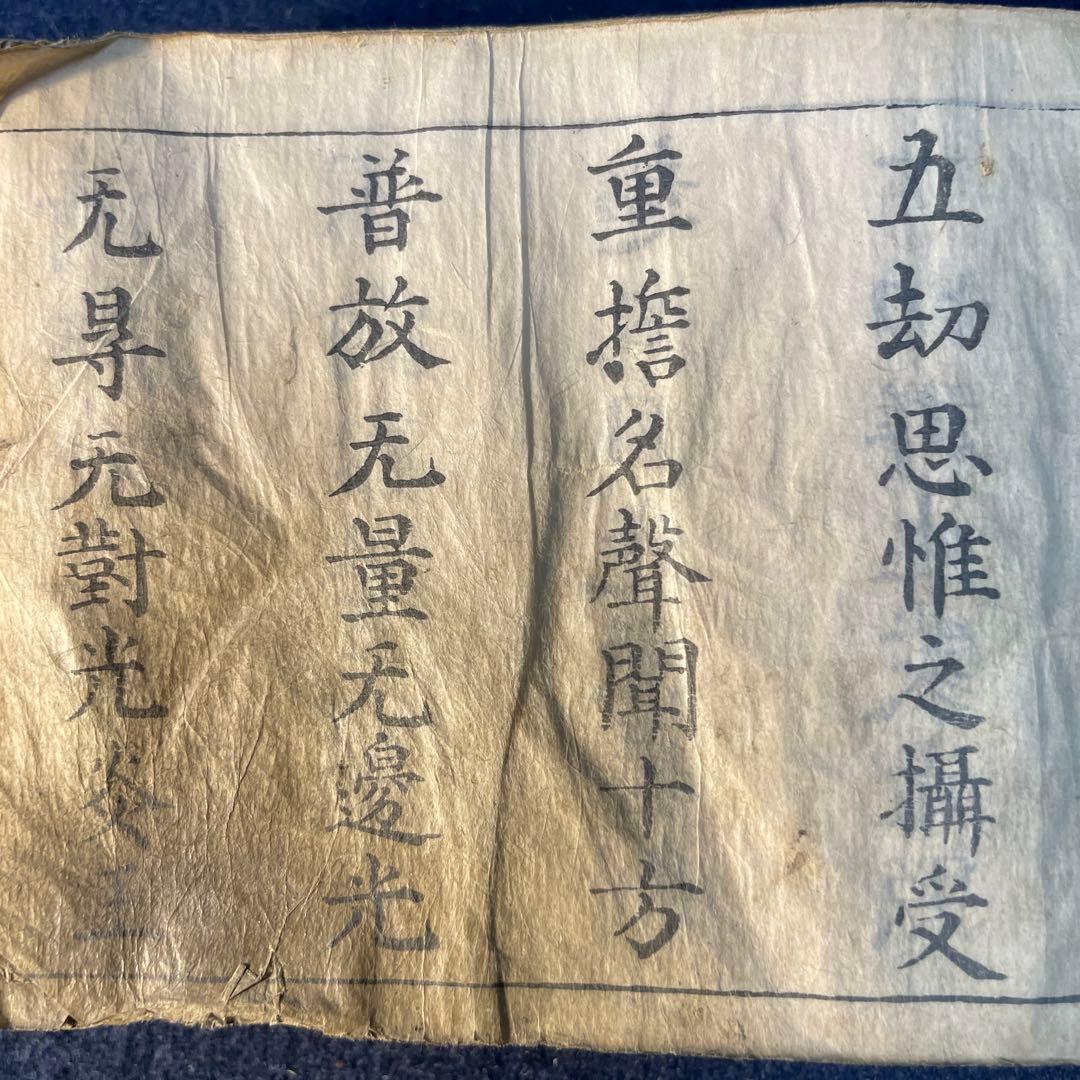 五劫思惟之攝受
重擔名聲聞十方
普放无量无邊光
无㝵无對光炎王